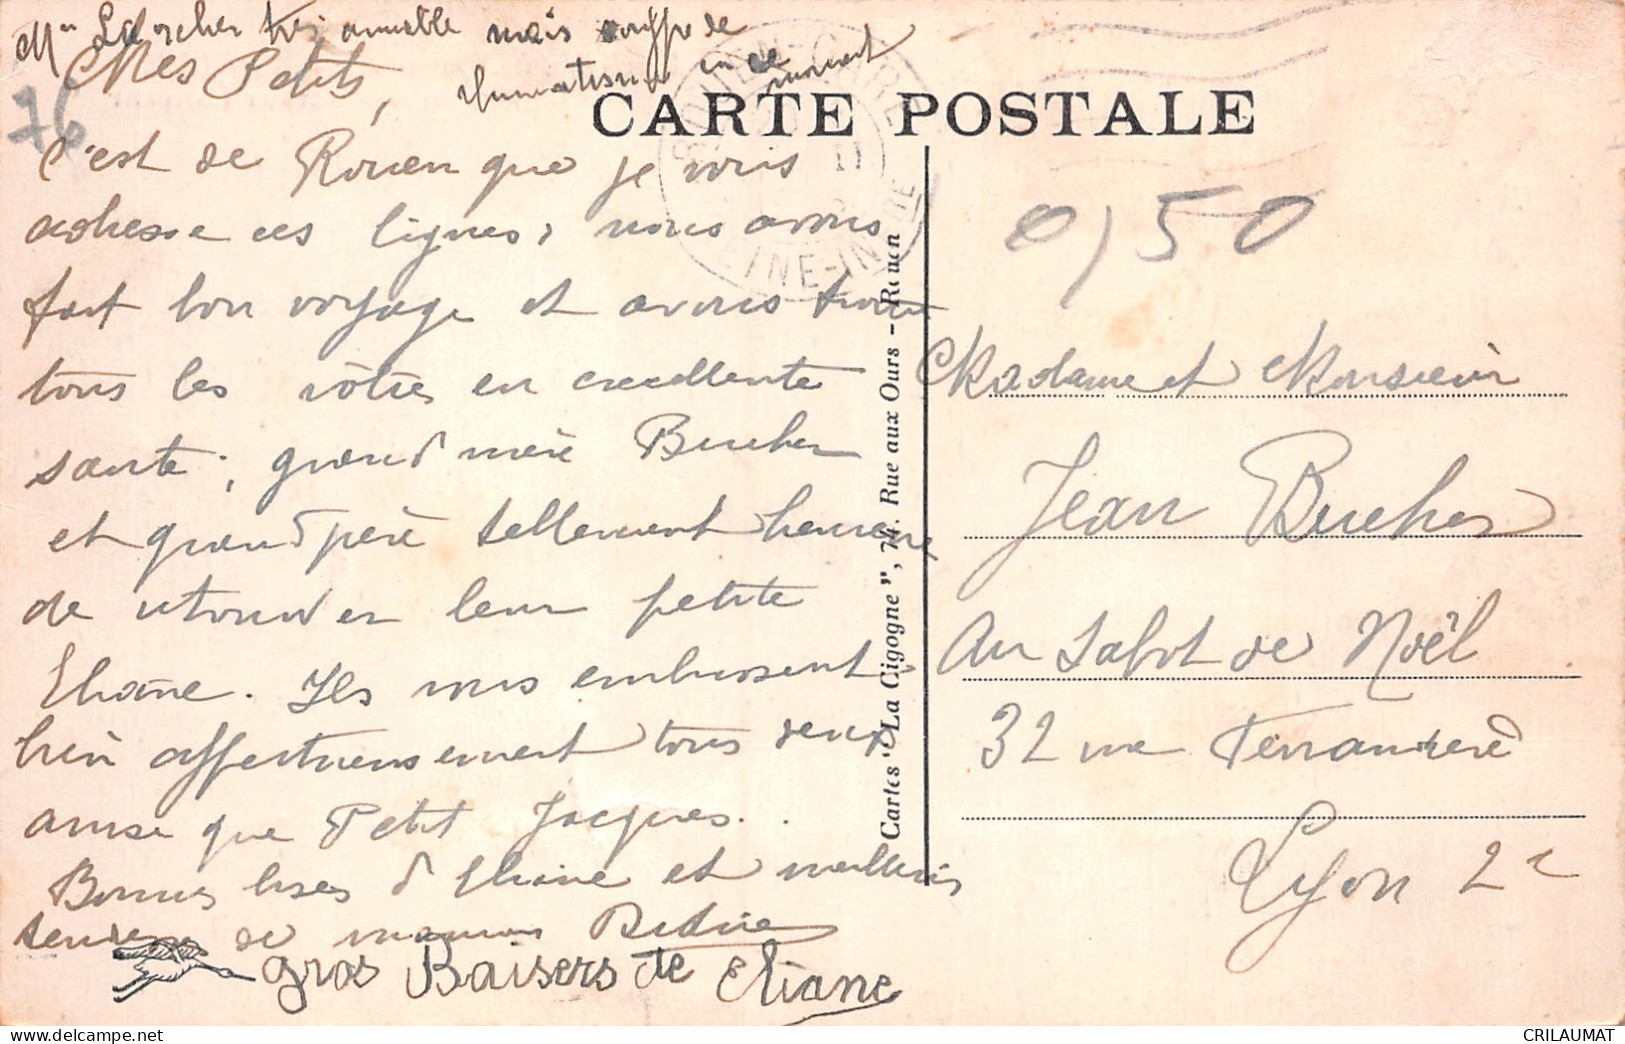 très aimable mais souffre de
rhumatisme en ce moment
Mes Petits,
76
c'est de Rouen que je vous
adresse ces lignes, nous avons
fait bon voyage et avons trouvé
tous les nôtres en excellente
santé ; grand mère Bucher
et grand père tellement heureux
de retrouver leur petite
Eliane. Ils vous embrassent
bien affectueusement tous deux
ainsi que Petit Jacques..
Bonnes bises d'Eliane et meilleures
tendresses de maman
gros Baisers de eliane
CARTE POSTALE
ROUEN-GARE
SEINE-INFRE
Cartes "La Cigogne", 74. Rue aux Ours - Rouen
0,50
Madame et Monsieur
Jean Bucher
Au Sabot de Noël
32 rue Ferrandière
Lyon 2e
CRILAUMAT